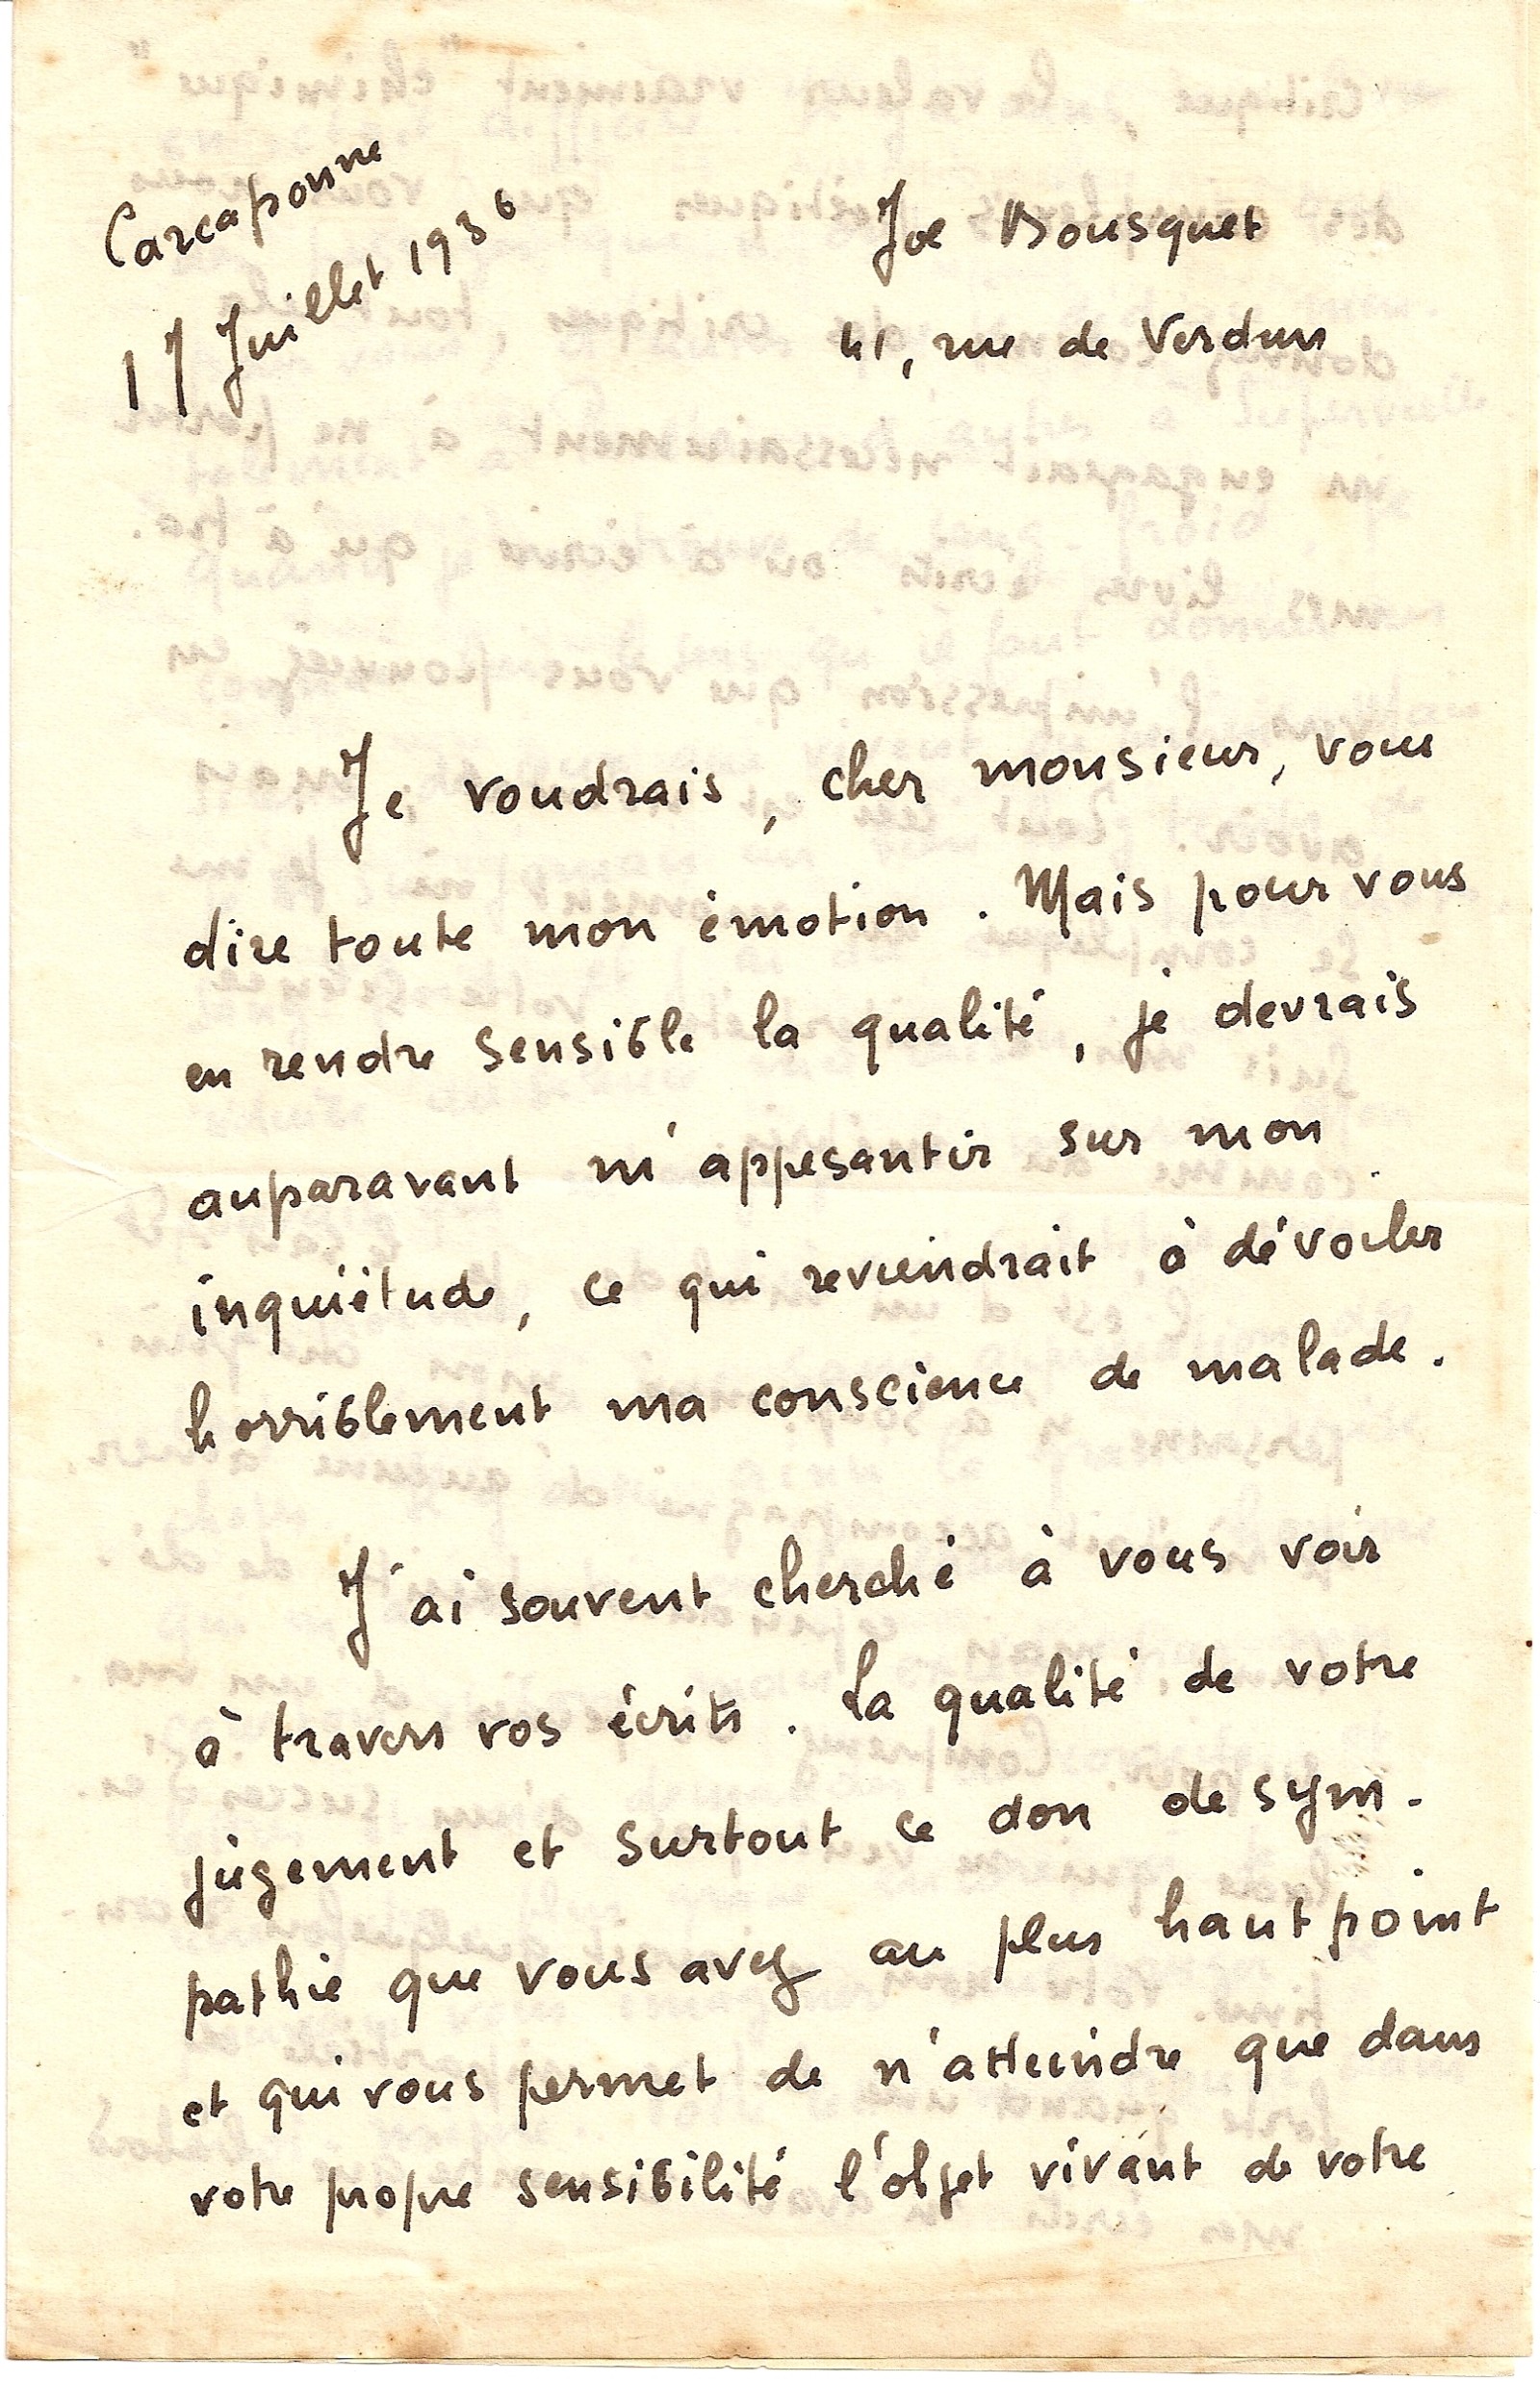 Carcassonne
17 Juillet 1936
Joe Bousquet
41, rue de Verdun
Je voudrais, cher monsieur, vous
dire toute mon émotion. Mais pour vous
en rendre sensible la qualité, je devrais
auparavant m'appesantir sur mon
inquiétude, ce qui reviendrait à dévoiler
horriblement ma conscience de malade.
J'ai souvent cherché à vous voir
à travers vos écrits. La qualité de votre
jugement et surtout ce don de sym-
pathie que vous avez au plus haut point
et qui vous permet de n'atteindre que dans
votre propre sensibilité l'objet vivant de votre